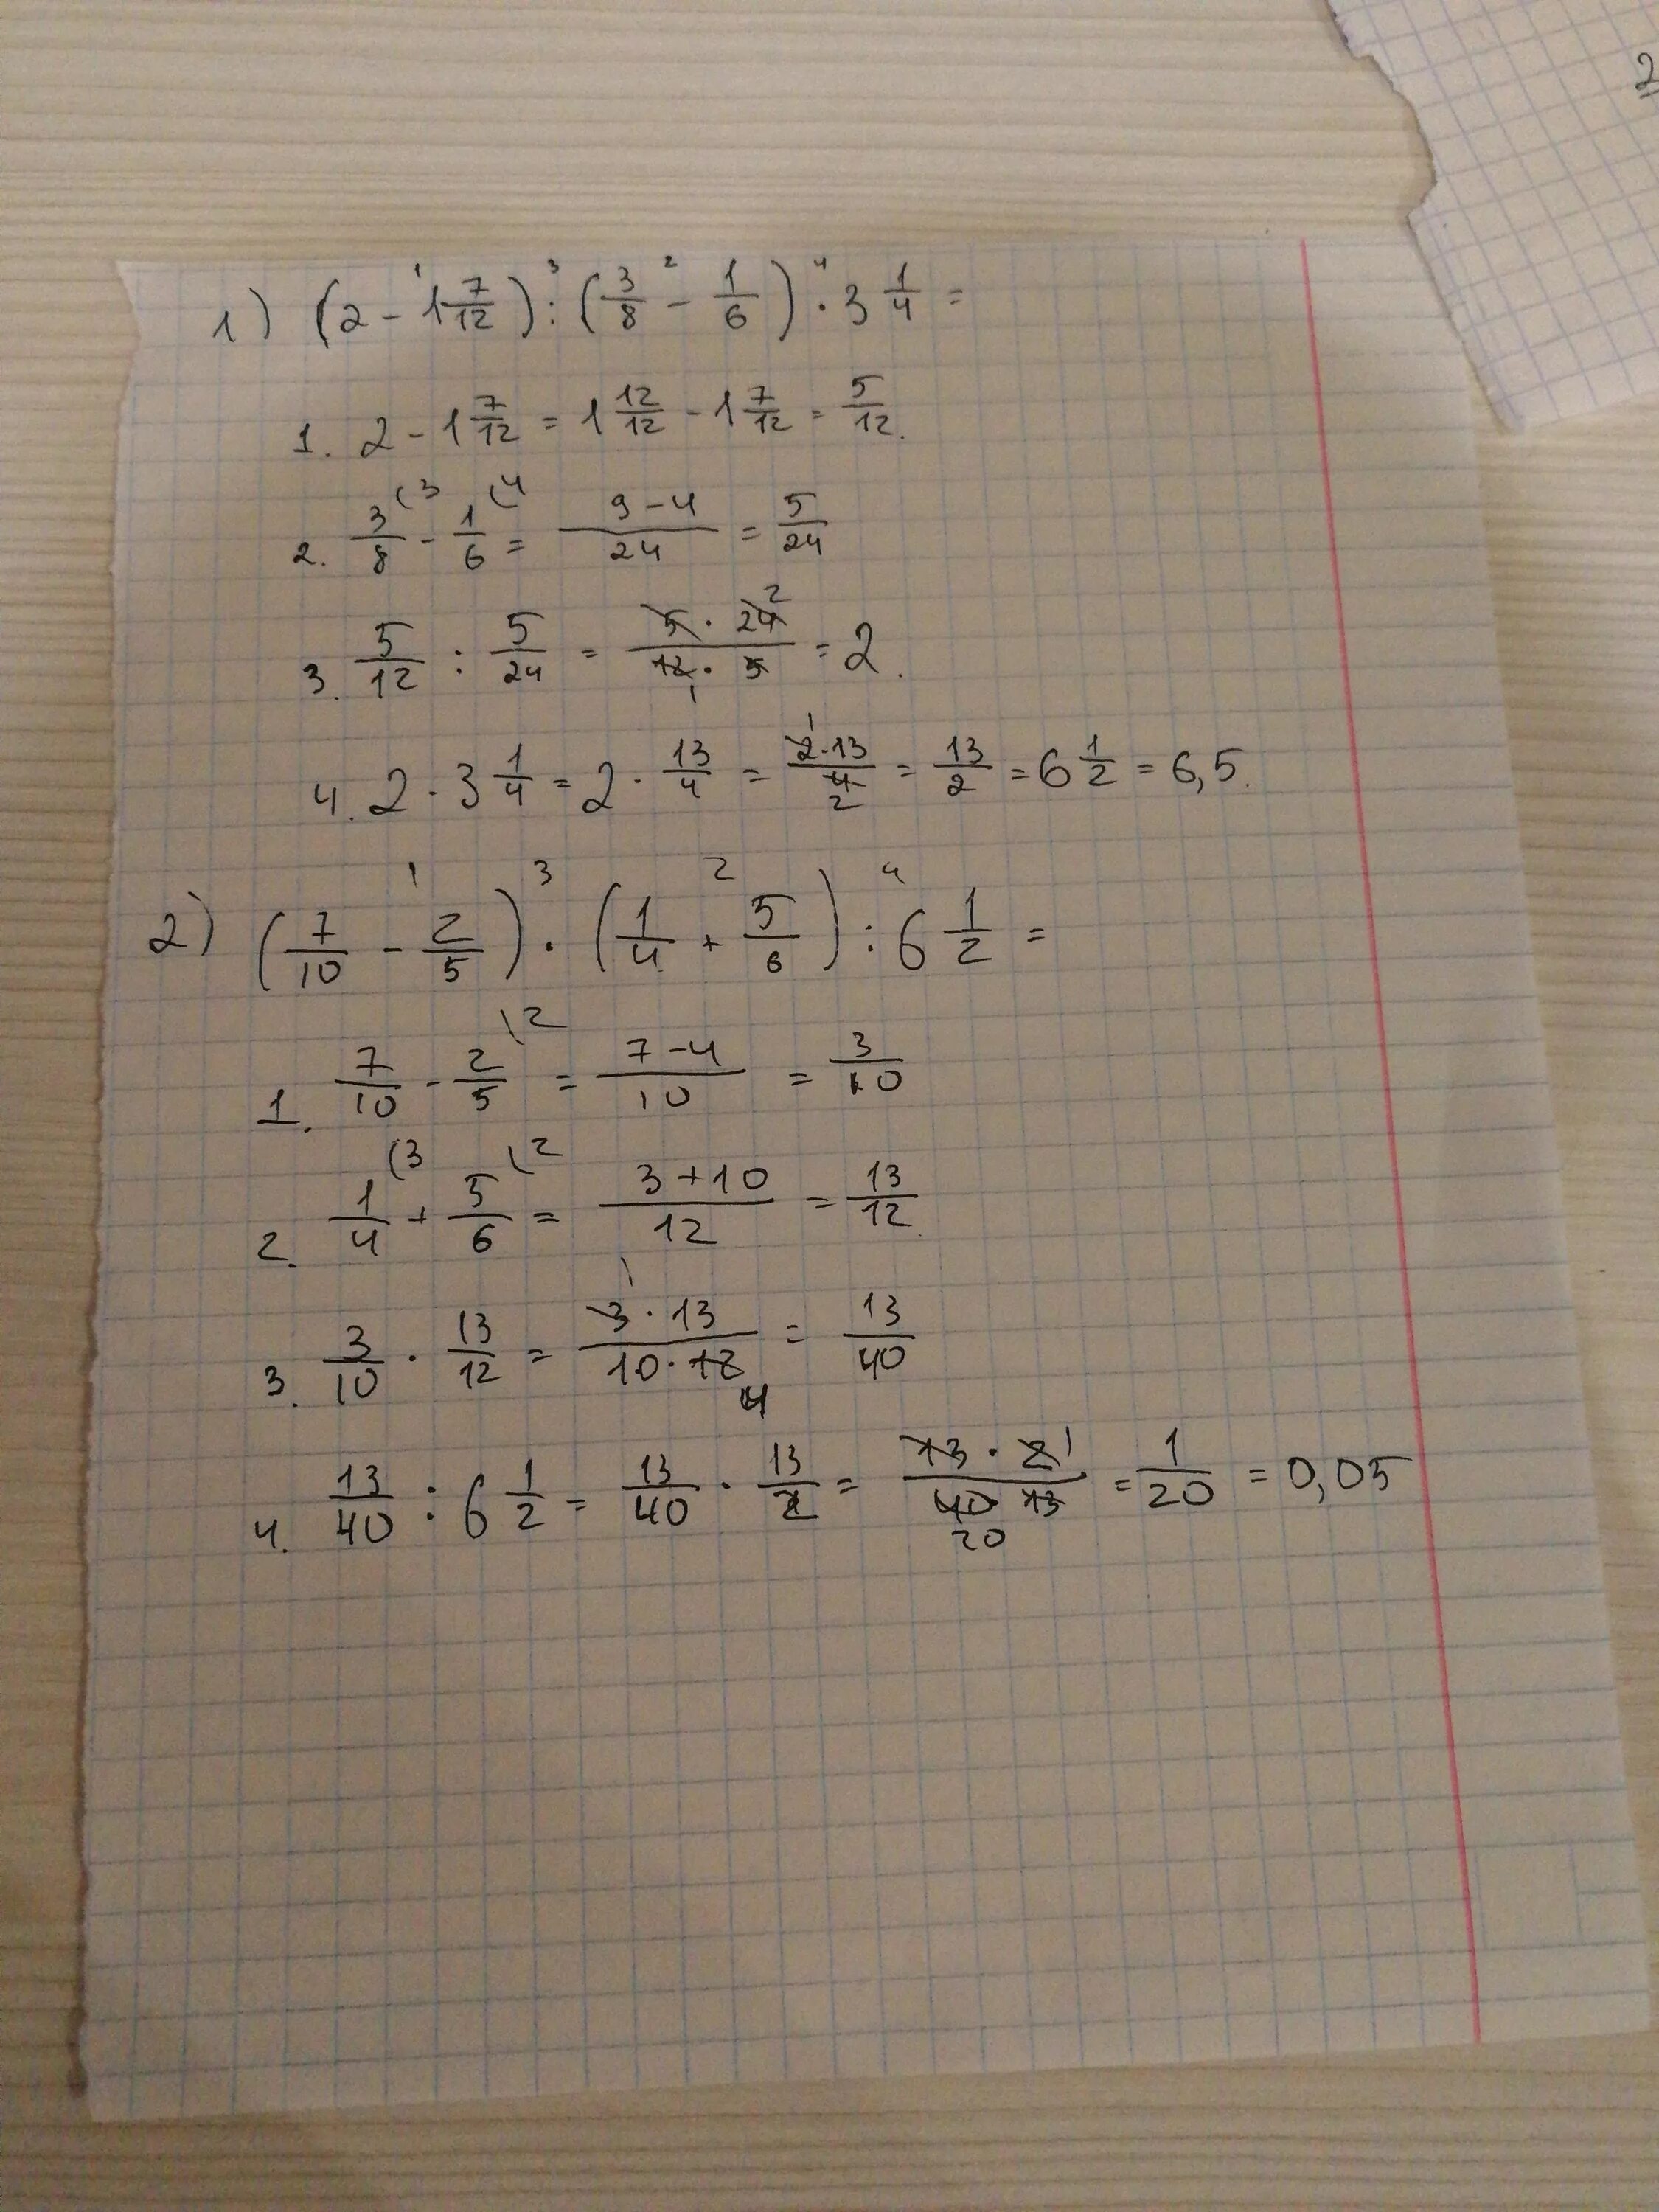 2
1) (2 - 1 7/12) : (3/8 - 1/6) · 3 1/4 =
1. 2 - 1 7/12 = 1 12/12 - 1 7/12 = 5/12.
2. 3/8 (3 - 1/6 (4 = 9-4/24 = 5/24
3. 5/12 : 5/24 = 5 · 24 2/12 · 5 1 = 2.
4. 2 · 3 1/4 = 2 · 13/4 = 2 1 · 13/4 2 = 13/2 = 6 1/2 = 6,5.
2) (7/10 - 2/5) · (1/4 + 5/6) : 6 1/2 =
1. 7/10 - 2/5 \2 = 7-4/10 = 3/10
2. 1/4 (3 + 5/6 (2 = 3+10/12 = 13/12
3. 3/10 · 13/12 = 3 1 · 13/10 · 12 4 = 13/40
4. 13/40 : 6 1/2 = 13/40 · 13/2 = 13 · 2 1/40 13 20 = 1/20 = 0,05